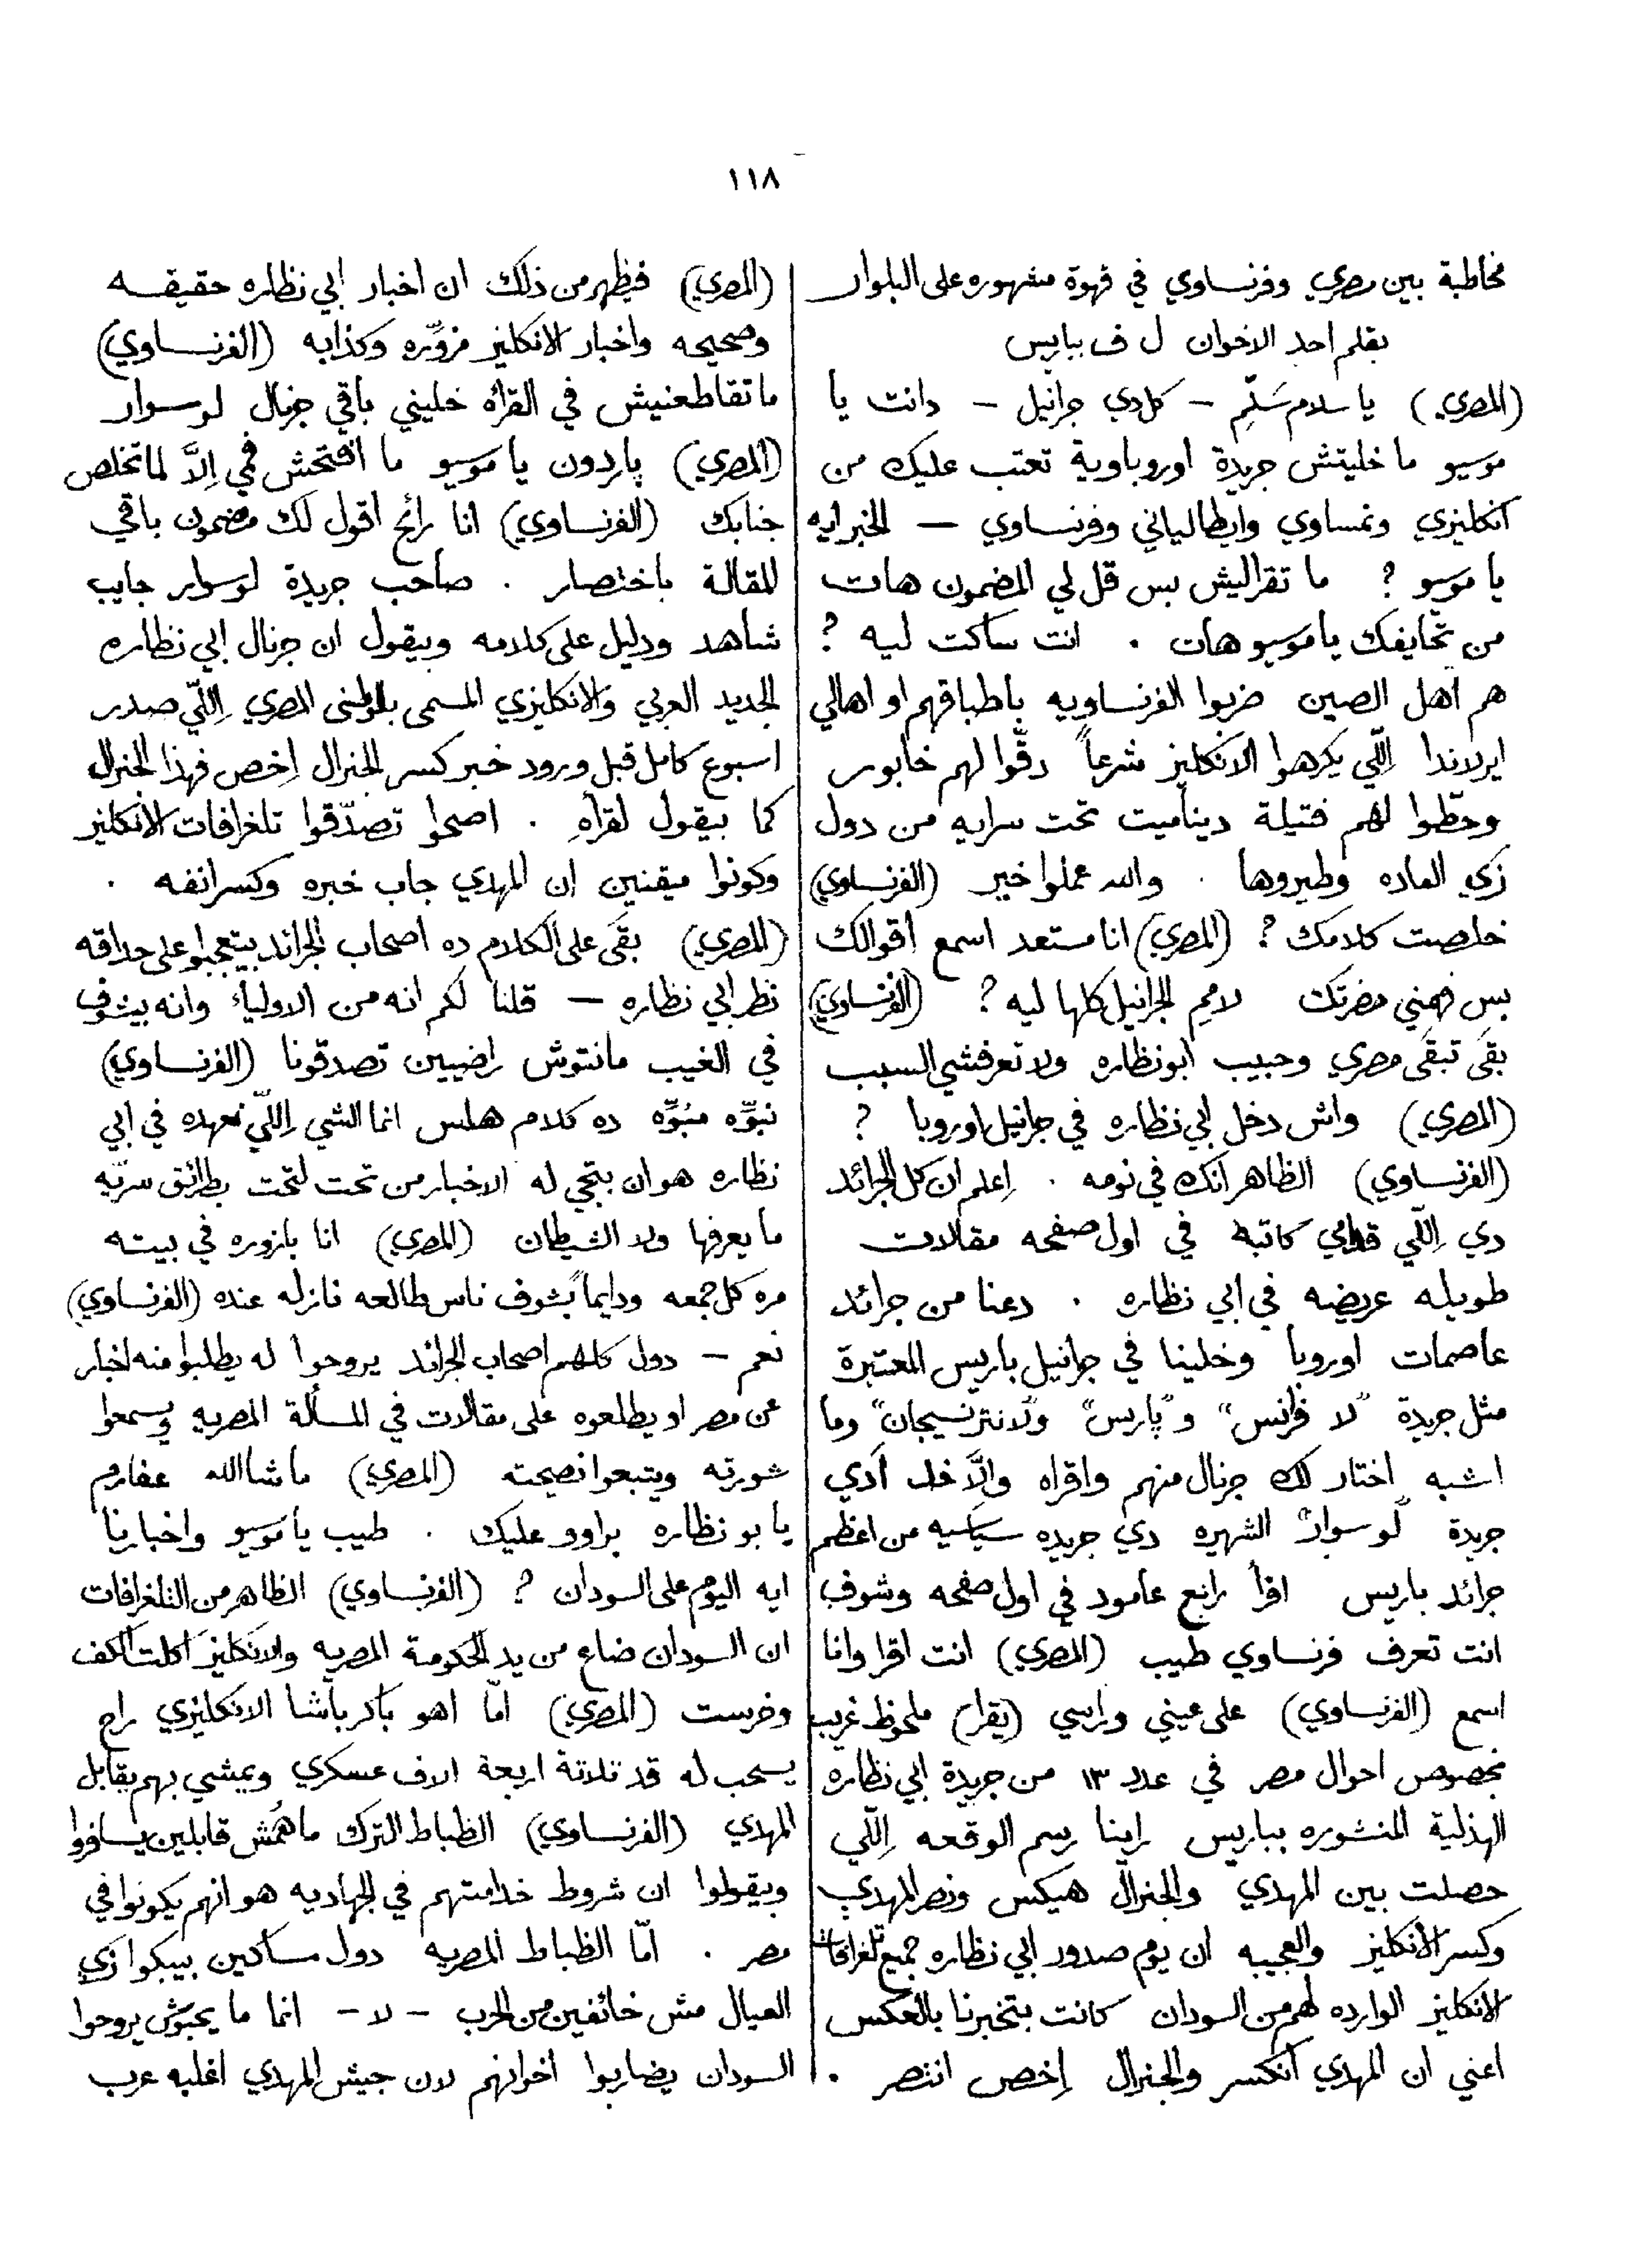 ١١٨
مخاطبة بين مصري وفرنساوي في قهوة مشهوره على البلوار
بقلم احد الاخوان ل ف بباريس
(المصري) يا سلام سَلِّم – كل دي جرانيل – دانت يا
موسيو ما خليتش جريدة اوروباوية تعتب عليك من
انكليزي ونمساوي وايطالياني وفرنساوي – الخبر ايه
يا موسيو ? ما تقراليش بس قل لي المضمون هات
من تخايفك يا موسيو هات . انت ساكت ليه ?
هم أهل الصين ضربوا الفرنساويه باطباقهم او اهالي
ايرلاندا اِللّي يكرهوا الانكليز شرعاً دقّوا لهم خابور
وحطّوا لهم فتيلة ديناميت تحت سرايه من دول
زي العاده وطيروها . والله عملوا خير (الفرنساوي)
خلصت كلامك ? (المصري) انا مستعد اسمع اقوالك
بس فهمني حضرتك لامم الجرانيل كلها ليه ? (الفرنساوي)
بقَى تبقَى مصري وحبيب ابو نظاره ولا تعرفشي السبب
(المصري) واش دخل ابي نظاره في جرانيل اوروبا ?
(الفرنساوي) الظاهر انك في نومه . اِعلم ان كل الجرائد
دي اِللّي قدامي كاتبة في اول صفحه مقالات
طويله عريضه في ابي نظاره . دعنا من جرائد
عاصمات اوروبا وخلينا في جرانيل باريس المعتبرة
مثل جريدة "لا فرانس" و"پاريس" و"لانترنسيجان" وما
اشبه اختار لك جرنال منهم واقراه والاَّ خد أدي
جريدة "لو سوار" الشهيره دي جريده سياسيه من اعظم
جرائد باريس اقرأ رابع عامود في اول صفحه وشوف
انت تعرف فرنساوي طيب (المصري) انت اقرا وانا
اسمع (الفرنساوي) على عيني وراسي (يقرا) ملحوظ غريب
بخصوص احوال مصر في عدد ١٣ من جريدة ابي نظاره
الهذلية المنشوره بباريس راينا رسم الوقعه اِللّي
حصلت بين المهدي والجنرال هيكس ونصر المهدي
وكسر الانكليز والعجيبه ان يوم صدور ابي نظاره جميع تلغرافات
الانكليز الوارده لهم من السودان كانت بتخبرنا بالعكس
اعني ان المهدي انكسر والجنرال اِخص انتصر .
(المصري) فيظهر من ذلك ان اخبار ابي نظاره حقيقه
وصحيحه واخبار الانكليز مزوّره وكذابه (الفرنساوي)
ما تقاطعنيش في القرأه خليني باقي جرنال لو سوار
(المصري) پاردون يا موسيو ما افتحش فمي اِلاَّ لما تخلص
جنابك (الفرنساوي) انا رائح اقول لك مضمون باقي
المقالة باختصار . صاحب جريدة لو سوار جايب
شاهد ودليل على كلامه وبيقول ان جرنال ابي نظاره
الجديد العربي والانكليزي المسمى بالوطنى المصري اِللّي صدر
اسبوع كامل قبل ورود خبر كسر الجنرال اِخص فهذا الجنرال
كما بيقول لقراهِ . اصحوا تصدّقوا تلغرافات الانكليز
وكونوا ميقنين ان المهدي جاب خبره وكسر انفه .
(المصري) بقَى على الكلام ده اصحاب الجرائد بيتعجبوا على حداقه
نظر ابي نظاره – قلنا لكم انه من الاولياء وانه بيشوف
في الغيب مانتوش راضيين تصدقونا (الفرنساوي)
نبوّه منبوّه ده كلام هلس انما الشي اِللّي نعهده في ابي
نظاره هو ان بتجي له الاخبار من تحت لتحت بطرائق سرّيه
ما يعرفها ولا الشيطان (المصري) انا بازوره في بيته
مره كل جمعه ودايماً بشوف ناس طالعه نازله عنده (الفرنساوي)
نعم – دول كلهم اصحاب الجرائد يروحوا له يطلبوا منه اخبار
عن مصر او يطلعوه على مقالات في المسألة المصريه ويسمعوا
شورته ويتبعوا نصيحته (المصري) ما شا الله عفارم
يا بو نظاره براوو عليك . طيب يا موسيو واخبارنا
ايه اليوم على السودان ? (الفرنساوي) الظاهر من التلغرافات
ان السودان ضاع من يد الحكومة المصريه والانكليز اكلت الكف
وخرست (المصري) امّا اهو باكر باشا الانكليزي راح
يسحب له قد تلاتة اربعة الاف عسكري ويمشي بهم يقابل
المهدي (الفرنساوي) الظباط الترك ما هُمش قابلين يسافروا
ويقولوا ان شروط خدامتهم في الجهاديه هو انهم يكونوا في
مصر . امّا الظباط المصريه دول مساكين بيبكوا زي
العيال مش خائفين من الحرب – لا – انما ما يحبوّش يروحوا
السودان يضاربوا اخوانهم لان جيش المهدي اغلبه عرب